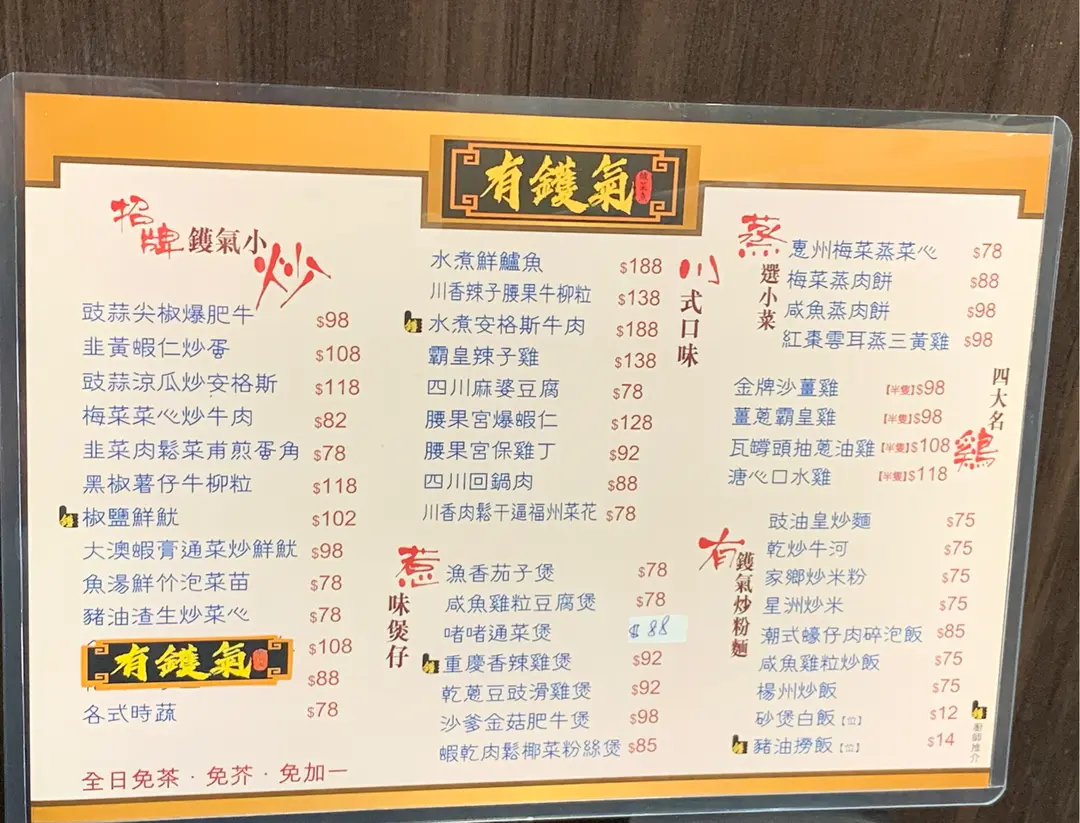 有鑊氣
招牌鑊氣小炒
豉蒜尖椒爆肥牛 $98
韭黃蝦仁炒蛋 $108
豉蒜涼瓜炒安格斯 $118
梅菜菜心炒牛肉 $82
韭菜肉鬆菜甫煎蛋角 $78
黑椒薯仔牛柳粒 $118
椒鹽鮮魷 $102
大澳蝦膏通菜炒鮮魷 $98
魚湯鮮竹泡菜苗 $78
豬油渣生炒菜心 $78
$108
有鑊氣
$88
各式時蔬 $78
全日免茶·免芥·免加一
川式口味
水煮鮮鱸魚 $188
川香辣子腰果牛柳粒 $138
水煮安格斯牛肉 $188
霸皇辣子雞 $138
四川麻婆豆腐 $78
腰果宮爆蝦仁 $128
腰果宮保雞丁 $92
四川回鍋肉 $88
川香肉鬆干逼福州菜花 $78
惹味煲仔
漁香茄子煲 $78
咸魚雞粒豆腐煲 $78
啫啫通菜煲 $88
重慶香辣雞煲 $92
乾蔥豆豉滑雞煲 $92
沙爹金菇肥牛煲 $98
蝦乾肉鬆椰菜粉絲煲 $85
蒸選小菜
惠州梅菜蒸菜心 $78
梅菜蒸肉餅 $88
咸魚蒸肉餅 $98
紅棗雲耳蒸三黃雞 $98
四大名鷄
金牌沙薑雞 【半隻】$98
薑蔥霸皇雞 【半隻】$98
瓦罉頭抽蔥油雞 【半隻】$108
溏心口水雞 【半隻】$118
有鑊氣炒粉麵
豉油皇炒麵 $75
乾炒牛河 $75
家鄉炒米粉 $75
星洲炒米 $75
潮式蠔仔肉碎泡飯 $85
咸魚雞粒炒飯 $75
楊州炒飯 $75
砂煲白飯【位】 $12
豬油撈飯【位】 $14
廚師推介